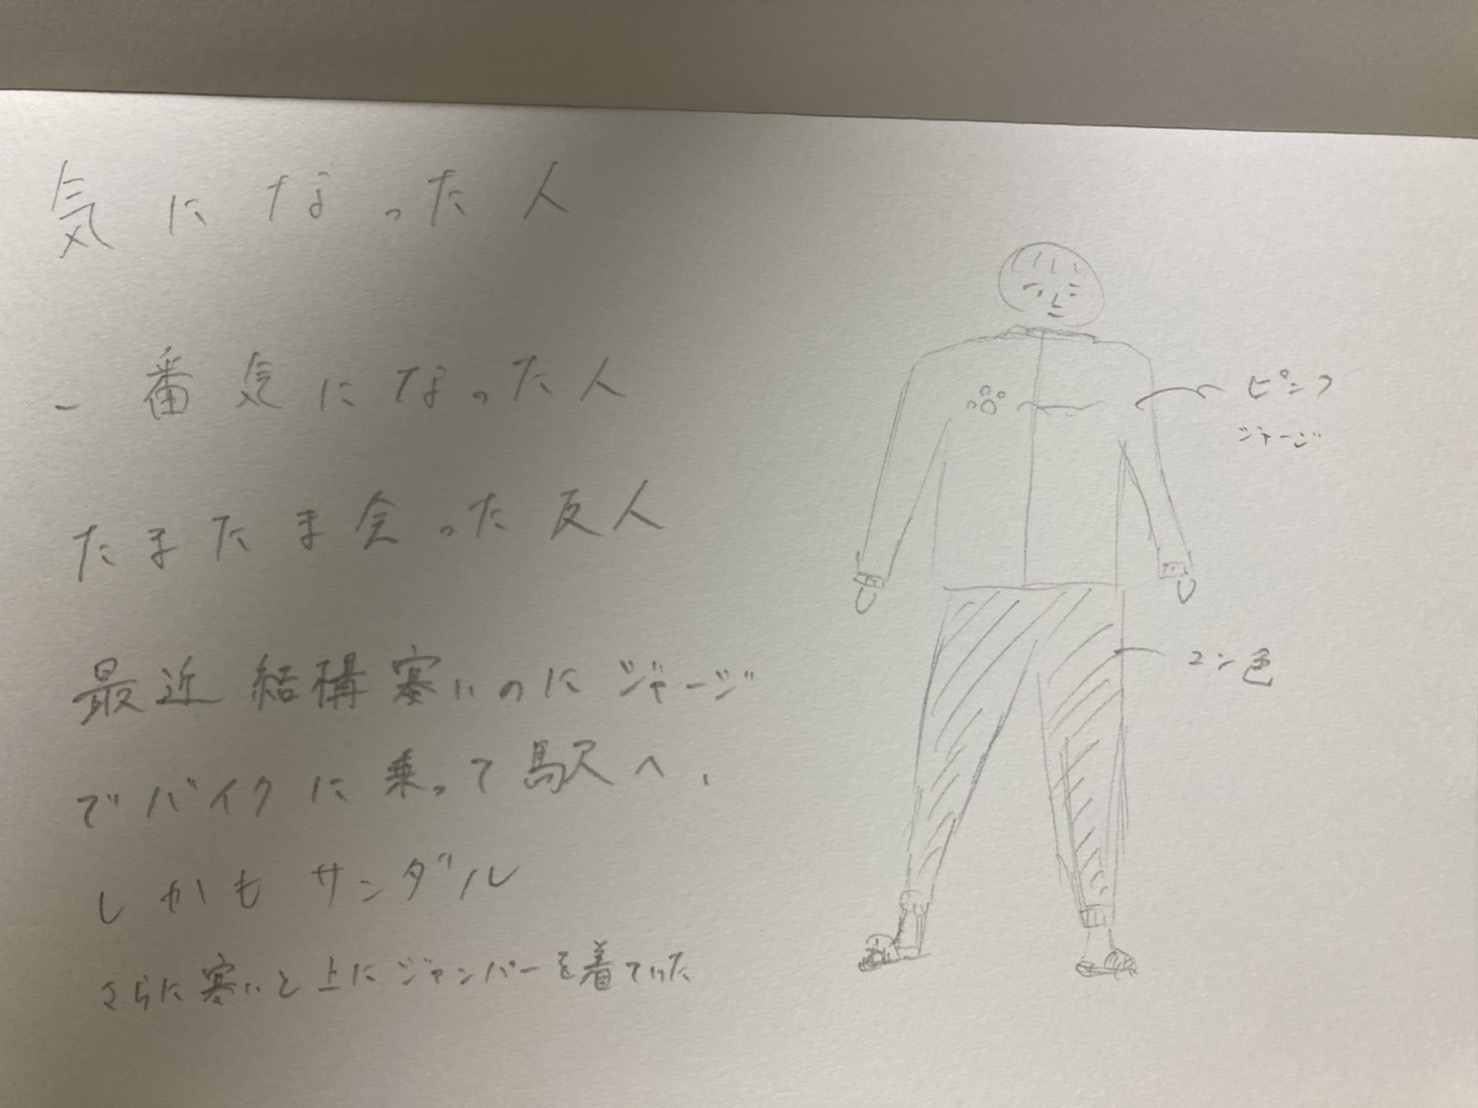 気になった人
一番気になった人
たまたま会った友人
最近結構寒いのにジャージ
でバイクに乗って駅へ、
しかもサンダル
さらに寒いと上にジャンパーを着ていた
ピンク
ジャージ
コン色